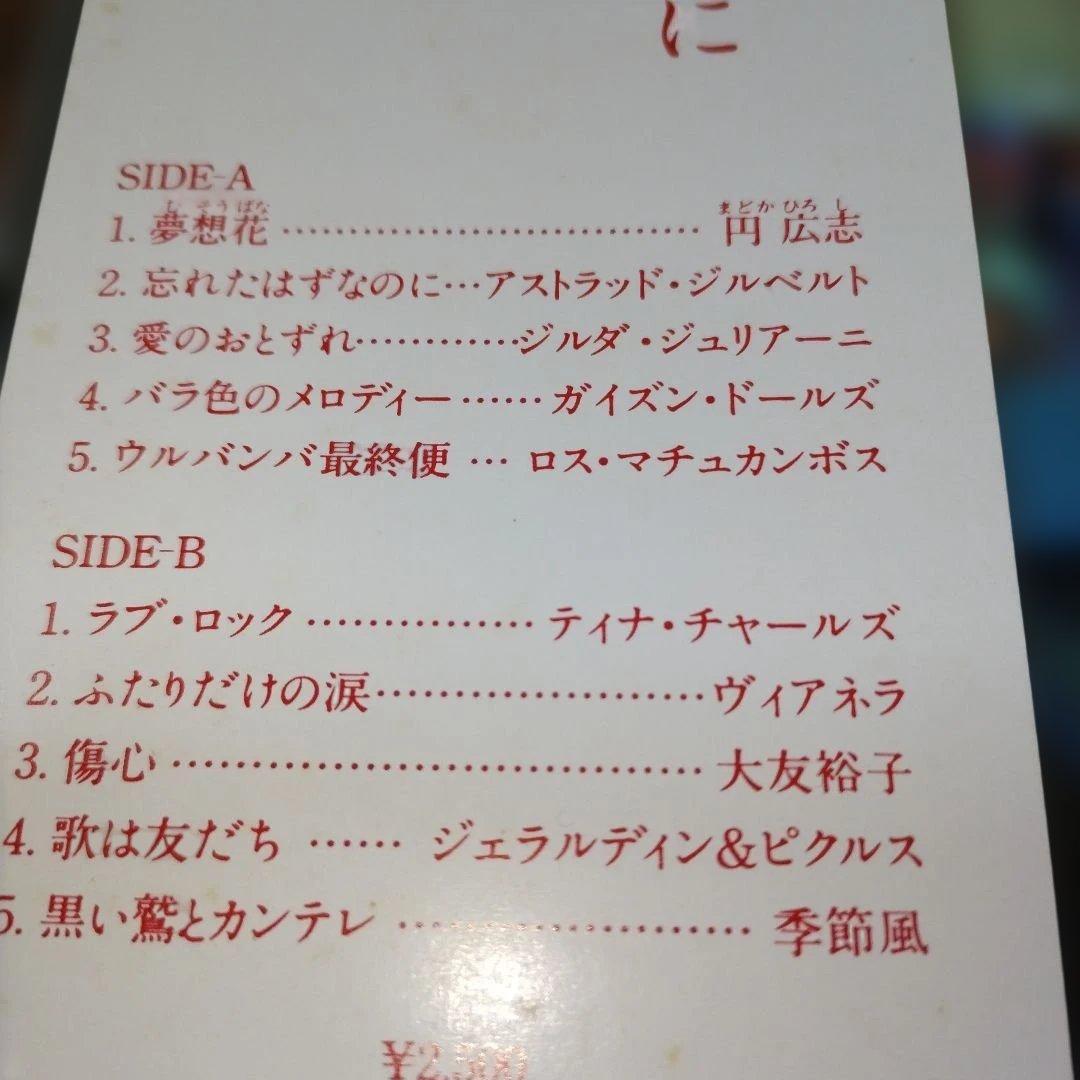 に
SIDE-A
むそうばな まどかひろし
1. 夢想花 …………………………… 円 広志
2. 忘れたはずなのに…アストラッド・ジルベルト
3. 愛のおとずれ…………ジルダ・ジュリアーニ
4. バラ色のメロディー……ガイズン・ドールズ
5. ウルバンバ最終便 … ロス・マチュカンボス
SIDE-B
1. ラブ・ロック …………… ティナ・チャールズ
2. ふたりだけの涙……………………ヴィアネラ
3. 傷心 ………………………………… 大友裕子
4. 歌は友だち …… ジェラルディン&ピクルス
5. 黒い鷲とカンテレ ……………………… 季節風
¥2,500